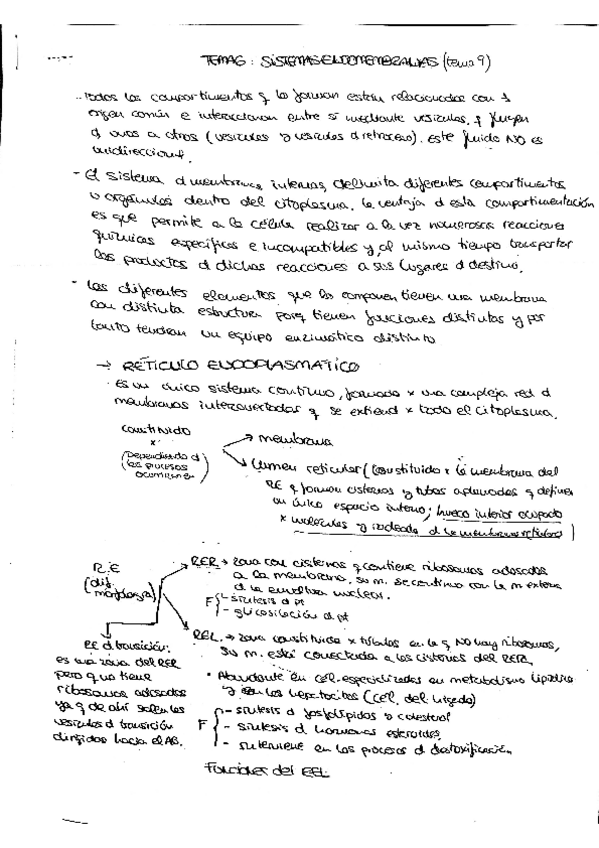 TEMA6: SISTEMAS ENDOMEMBRANAS (tema 9)
- Todos los compartimentos q lo forman están relacionados con 1
origen común e interaccionan entre si mediante vesículas, q fluyen
d unos a otros (vesículas y vesículas d retroceso). Este fluido NO es
unidireccional.
- El sistema d membranas internas, delimita diferentes compartimentos
u orgánulos dentro del citoplasma. la ventaja d esta compartimentación
es que permite a la célula realizar a la vez numerosas reacciones
químicas específicas e incompatibles y, al mismo tiempo transportar
los productos d dichas reacciones a sus lugares d destino.
- Los diferentes elementos que los componen tienen una membrana
con distinta estructura porq tienen funciones distintas y por
tanto tendran un equipo enzimático distinto
→ RETICULO ENDOPLASMATICO
es un único sistema continuo, formado x una compleja red d
membranas interconectadas q se extiend x todo el citoplasma.
constituido
x
(Dependiendo d
los procesos
ocurrirá en)
→ membrana
→ Lumen reticular (constituido x la membrana del
RE q forman cisternas y tubos aplanados q definen
un único espacio interno; hueco interior ocupado
x moléculas y rodeado d la membrana reticular)
R.E
(dif.
morfología)
RER → zona con cisternas q contiene ribosomas adosados
a la membrana, su m. se continua con la m externa
d la envoltura nuclear.
F { - síntesis d pt
- glicosilación d pt
REL → zona constituida x túbulos en la q NO hay ribosomas,
su m. está conectada a las cisternas del RER
• Abundante en cel. especializadas en metabolismo lipídico
y son los hepatocitos (cel. del hígado)
F { - síntesis d fosfolípidos o colesterol
- síntesis d hormonas esteroides
- interviene en los procesos d destoxificación.
RE d transición:
es una zona del RER
pero q no tiene
ribosomas adosados
ya q de ahí salen las
vesículas d transición
dirigidas hacia el AG.
Funciones del REL